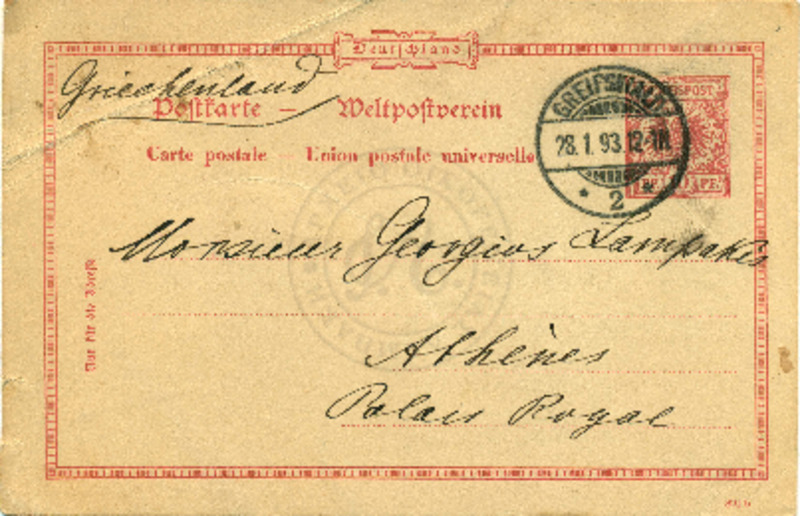 Deutschland
Griechenland
Postkarte – Weltpostverein
Carte postale – Union postale universelle
GREIFSWALD
28.1.93.12-1N.
* 2 *
REICHSPOST
10 PF
Monsieur Georgios Lampakis
Athènes
Palais Royal
Nur für die Adresse